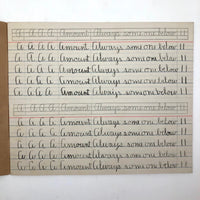 A A A A Amount Always someone below 11
A A A A Amount Always someone below 11
A A A A Amount Always someone below 11
A A A A Amount Always someone below 11
A A A A Amount Always someone below 11
A A A A Amount Always someone below 11
A A A A Amount Always someone below 11
A A A A Amount Always someone below 11
A A A A Amount Always someone below 11
A A A A Amount Always someone below 11
A A A A Amount Always someone below 11
A A A A Amount Always someone below 11